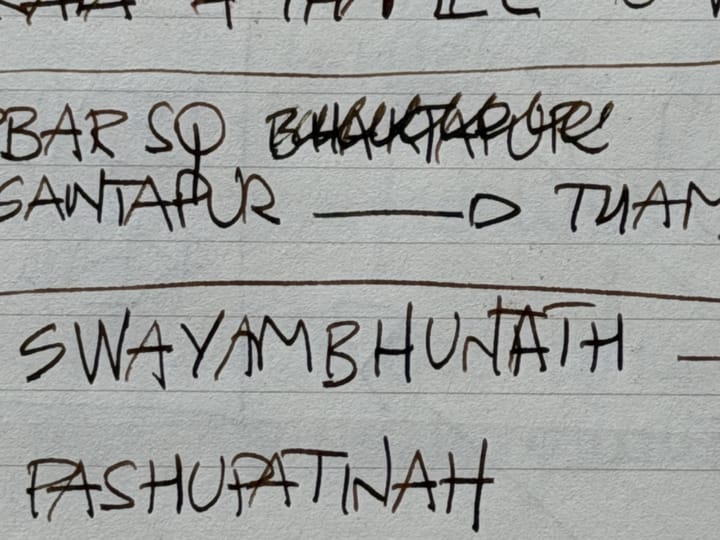 BAR SQ
SANTAPUR → THAM
SWAYAMBHUNATH —
PASHUPATINAH